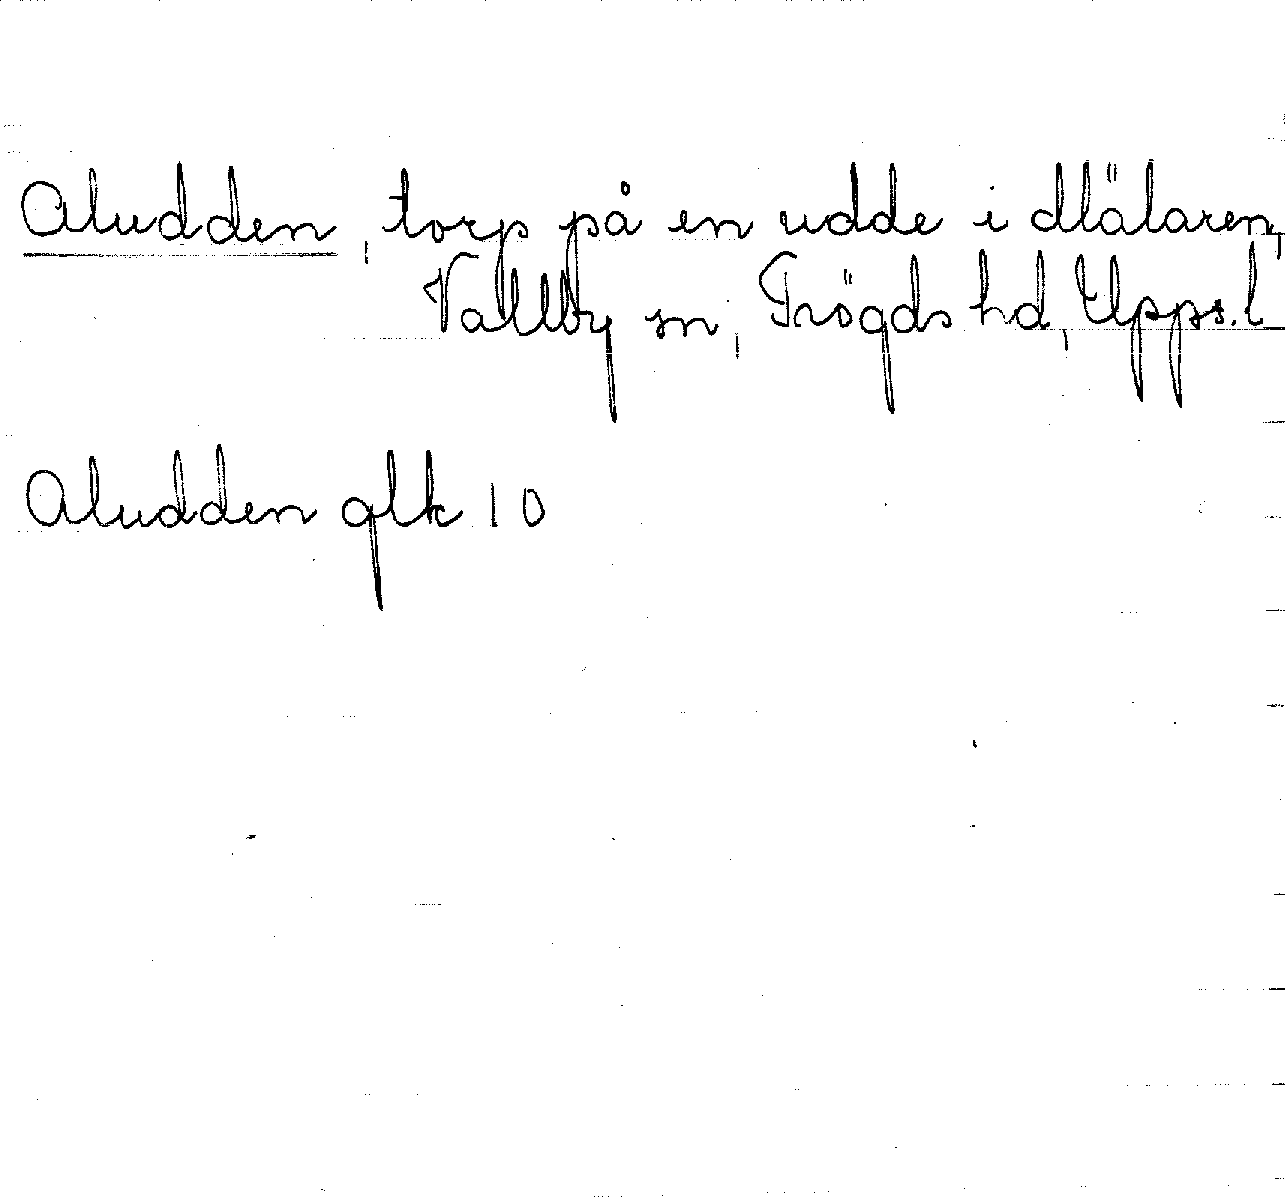 Aludden, torp på en udde i Mälaren,
Vallby sn, Trögds hd, Upps. l
Aludden glk 10